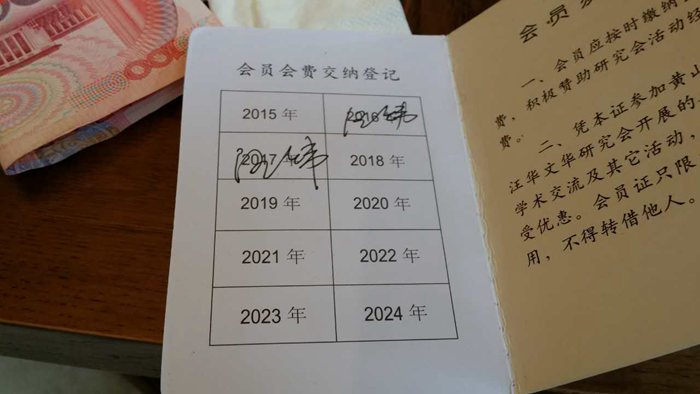 会员会费交纳登记
2015 年 2016
2017 年 2018 年
2019 年 2020 年
2021 年 2022 年
2023 年 2024 年
会员
一、会员应按时缴纳
费，积极赞助研究会活动经
费。
二、凭本证参加黄山
汪华文华研究会开展的
学术交流及其它活动，
受优惠。会员证只限
用，不得转借他人。
100